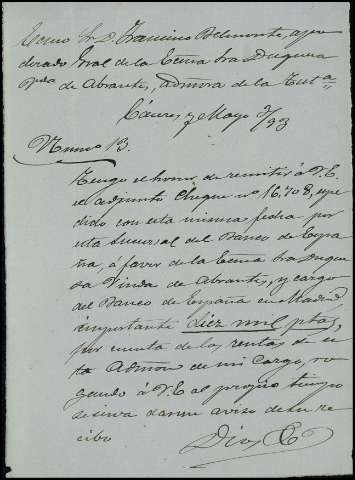 Excmo Sr. D. Francisco Belmonte, apo
derado Gral de la Excma Sra Duquesa
Vda de Abrantes, admora de la Testa
Cáceres 7 Mayo 3/93
Numo 13.
Tengo el honor de remitir á V.E.
el adjunto Cheque nº 16.708, expe
dido con esta misma fecha por
esta Sucursal del Banco de Espa
ña, á favor de la Excma Sra Duque
sa Viuda de Abrantes, y cargo
del Banco de España en Madrid
é importante diez mil ptas,
por cuenta de las rentas de es
ta Admon de mi cargo, ro
gando á V.E. al propio tiempo
se sirva darme aviso de su re
cibo
Dios &